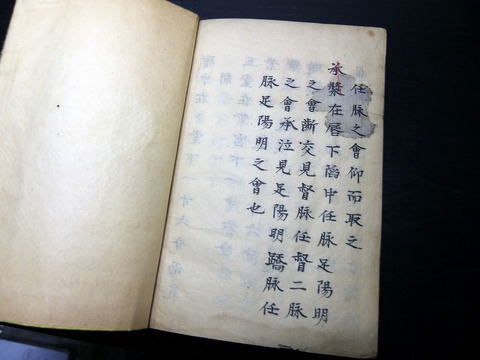 任脉之會仰而取之
承漿在唇下陷中任脉足陽明
之會斷交見督脉任督二脉
之會承泣見足陽明蹻脉任
脉足陽明之會也